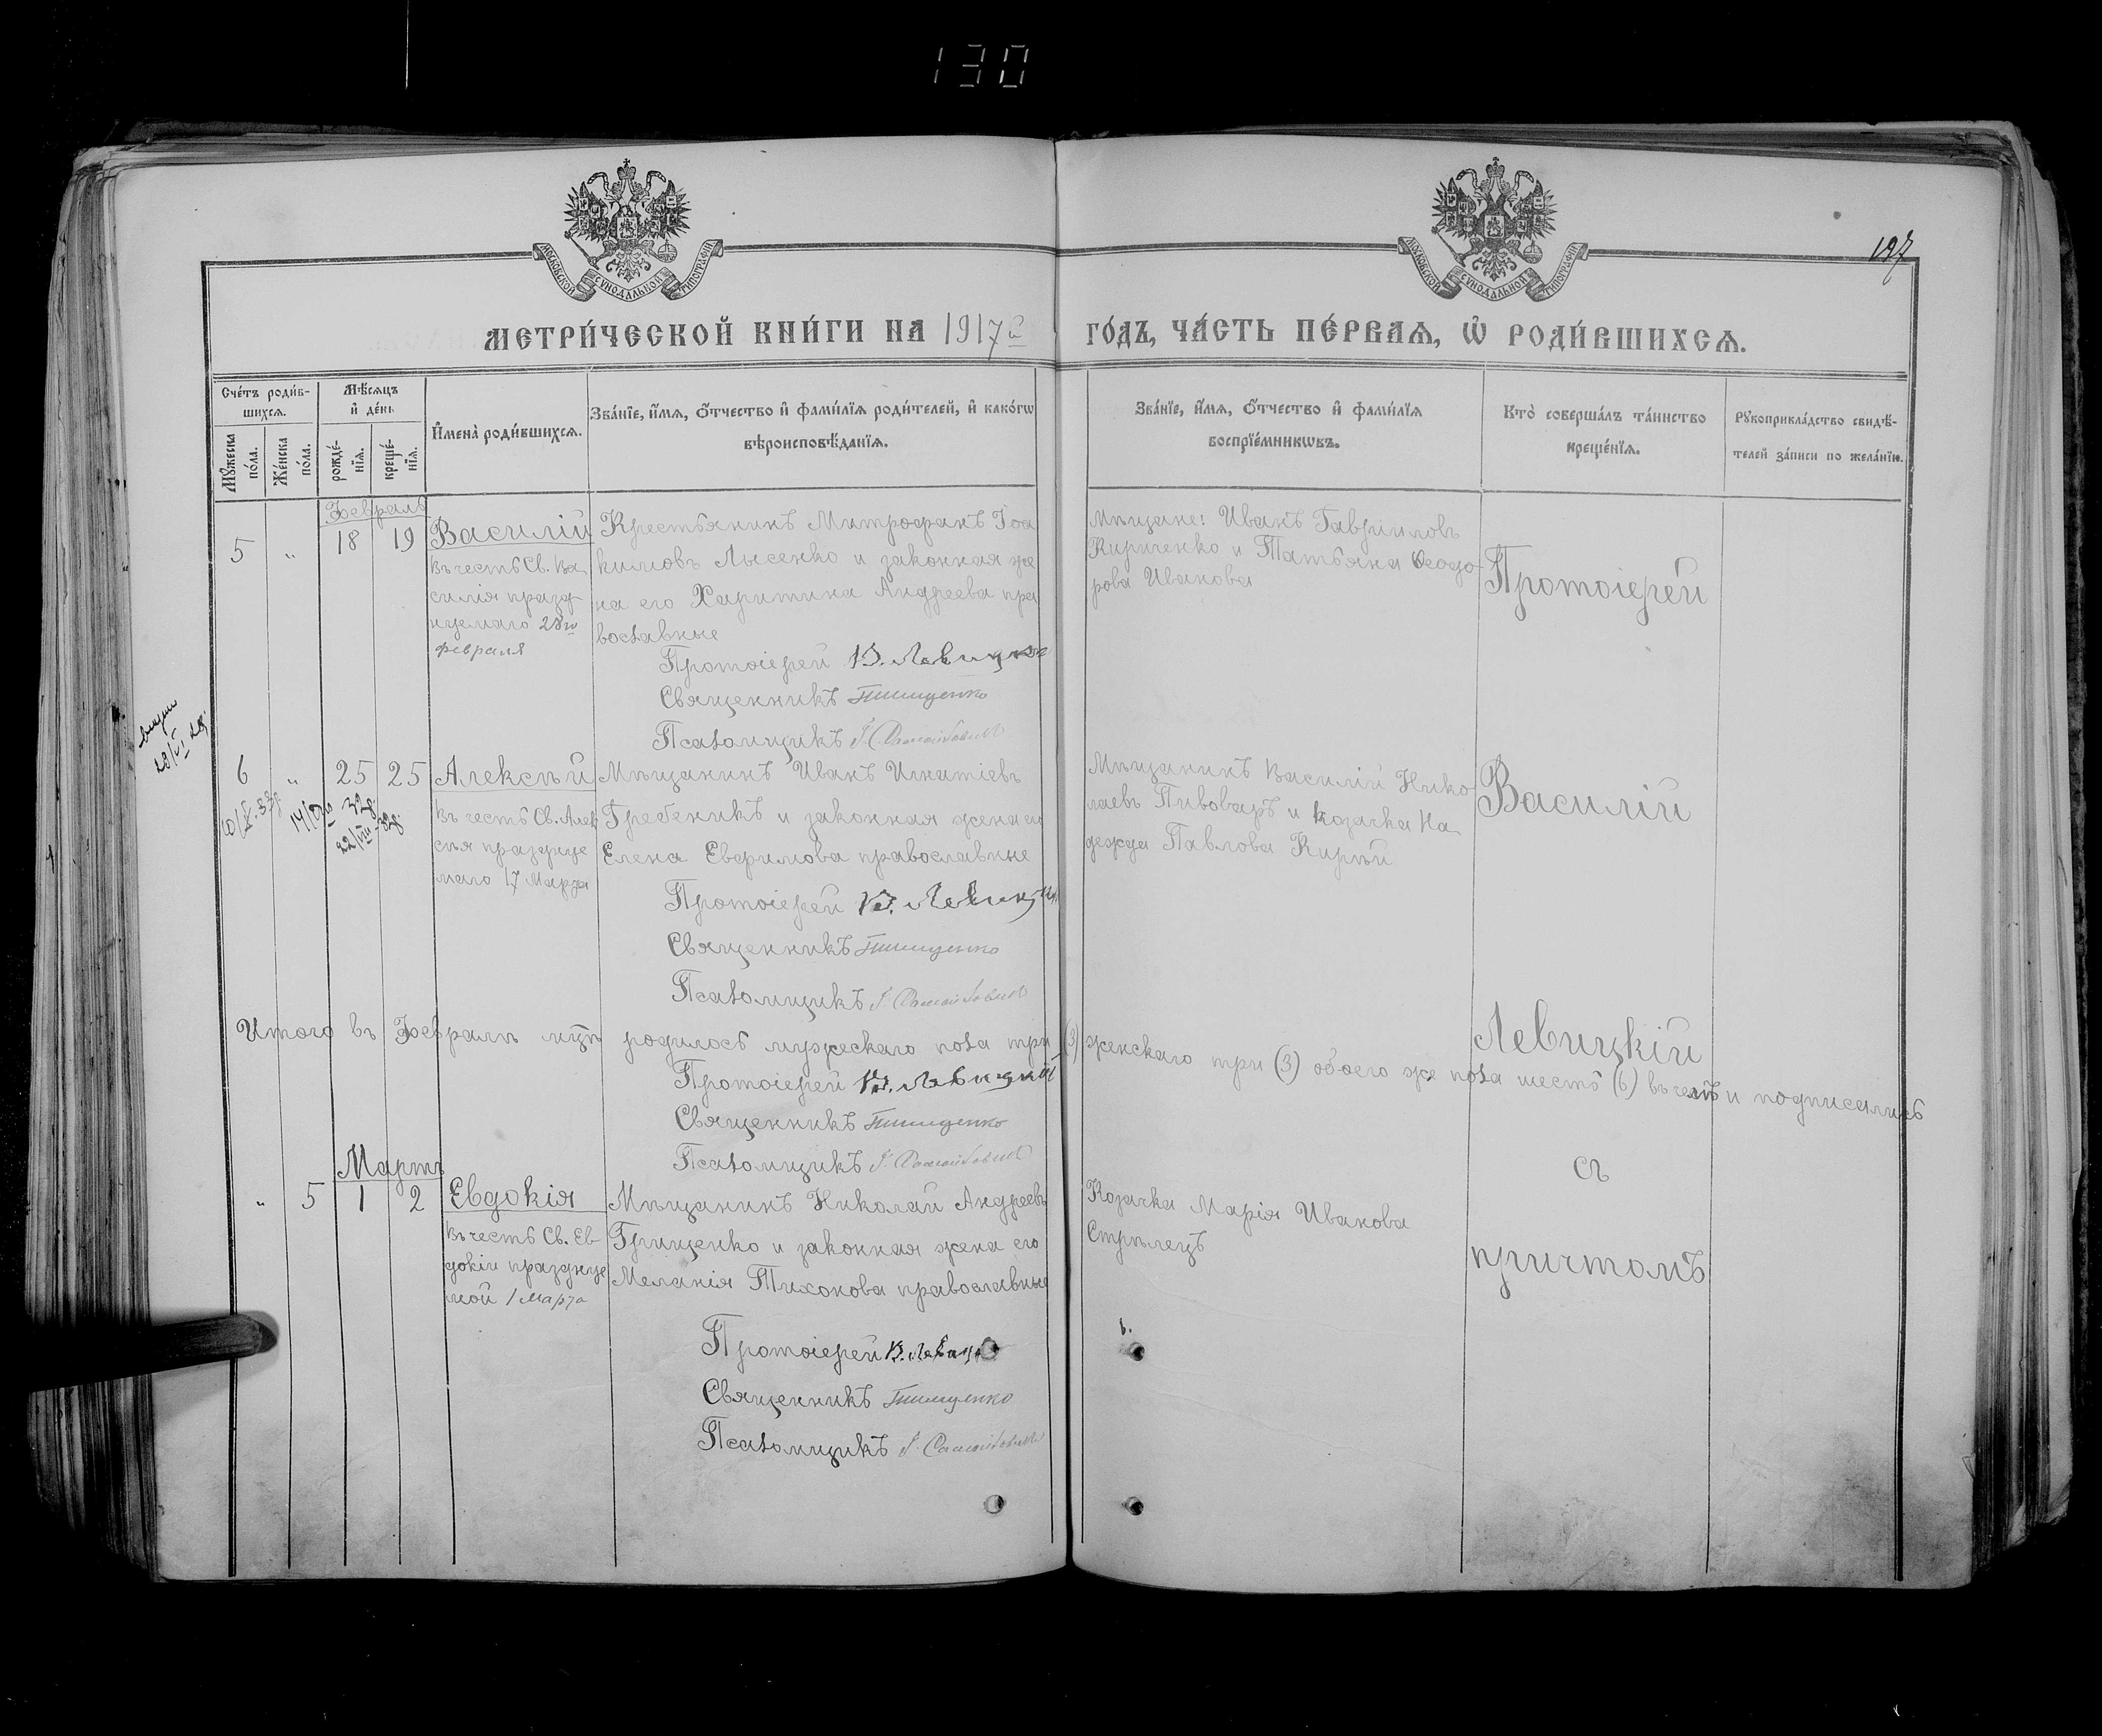 130
МОСКОВСКОЙ СѴНОДАЛЬНОЙ ТИПОГРАФІИ
МОСКОВСКОЙ СѴНОДАЛЬНОЙ ТИПОГРАФІИ
МЕТРИ́ЧЕСКОЙ КНИ́ГИ НА 1917й ГО́ДЪ, ЧА́СТЬ ПЕ́РВАѦ, Ѿ РОДИ́ВШИХСѦ.
Сче́тъ роди́в-
шихсѧ.
Мѣ́сѧцъ
и҆ де́нь
Мꙋ́жеска
по́ла.
Же́нска
по́ла.
рожде́-
нїѧ.
креще́-
нїѧ.
И҆мена̀ роди́вшихсѧ.
Зва́нїе, и҆́мѧ, ѻ҆́тчество и҆ фами́лїѧ роди́телей, и҆ како́гѡ
вѣроисповѣ́данїѧ.
Зва́нїе, и҆́мѧ, ѻ҆́тчество и҆ фами́лїѧ
воспрїе́мникѡвъ.
Кто̀ соверша́лъ та́инство
креще́нїѧ.
Рꙋкоприкла́дство свидѣ́-
телей за́писи по жела́нїю.
Февраль
5 " 18 19 Василій
въ честь Св. Ва-
силія празд-
нуемаго 28го
февраля
Крестьянинъ Митрофанъ Іоа
кимовъ Лысенко и законная же
на его Харитина Андреева пра
вославные
Протоіерей В. Левицкій
Священникъ
Псаломщикъ
Мѣщане: Иванъ Гавриловъ
Кириченко и Татьяна Ѳеодо-
рова Иванова
Протоіерей
6 " 25 25 Алексѣй
въ честь Св. Алек
сѣя праздуе
маго 17 Марта
Мѣщанинъ Иванъ Игнатіевъ
Гребеникъ и законная жена его
Елена Евфимова православные
Протоіерей В. Левицкій
Священникъ
Псаломщикъ
Мѣщанинъ Василій Нико
лаевъ Пивоваръ и козачка На-
дежда Павлова Кирѣй
Василій
Итого въ Февралѣ мцѣ родилось мужескаго пола три (3) женскаго три (3) обоего же пола шесть (6) въ чемъ и подписались
Протоіерей В. Левицкій
Священникъ
Псаломщикъ
Левицкій
Мартъ
" 5 1 2 Евдокія
въ честь Св. Ев-
докіи праздуе
мой 1 Марта
Мѣщанинъ Николай Андреевъ
Грищенко и законная жена его
Меланія Тихонова православные
Протоіерей В. Левицкій
Священникъ
Псаломщикъ
Козачка Марія Иванова
Стрѣлецъ
съ
причтомъ